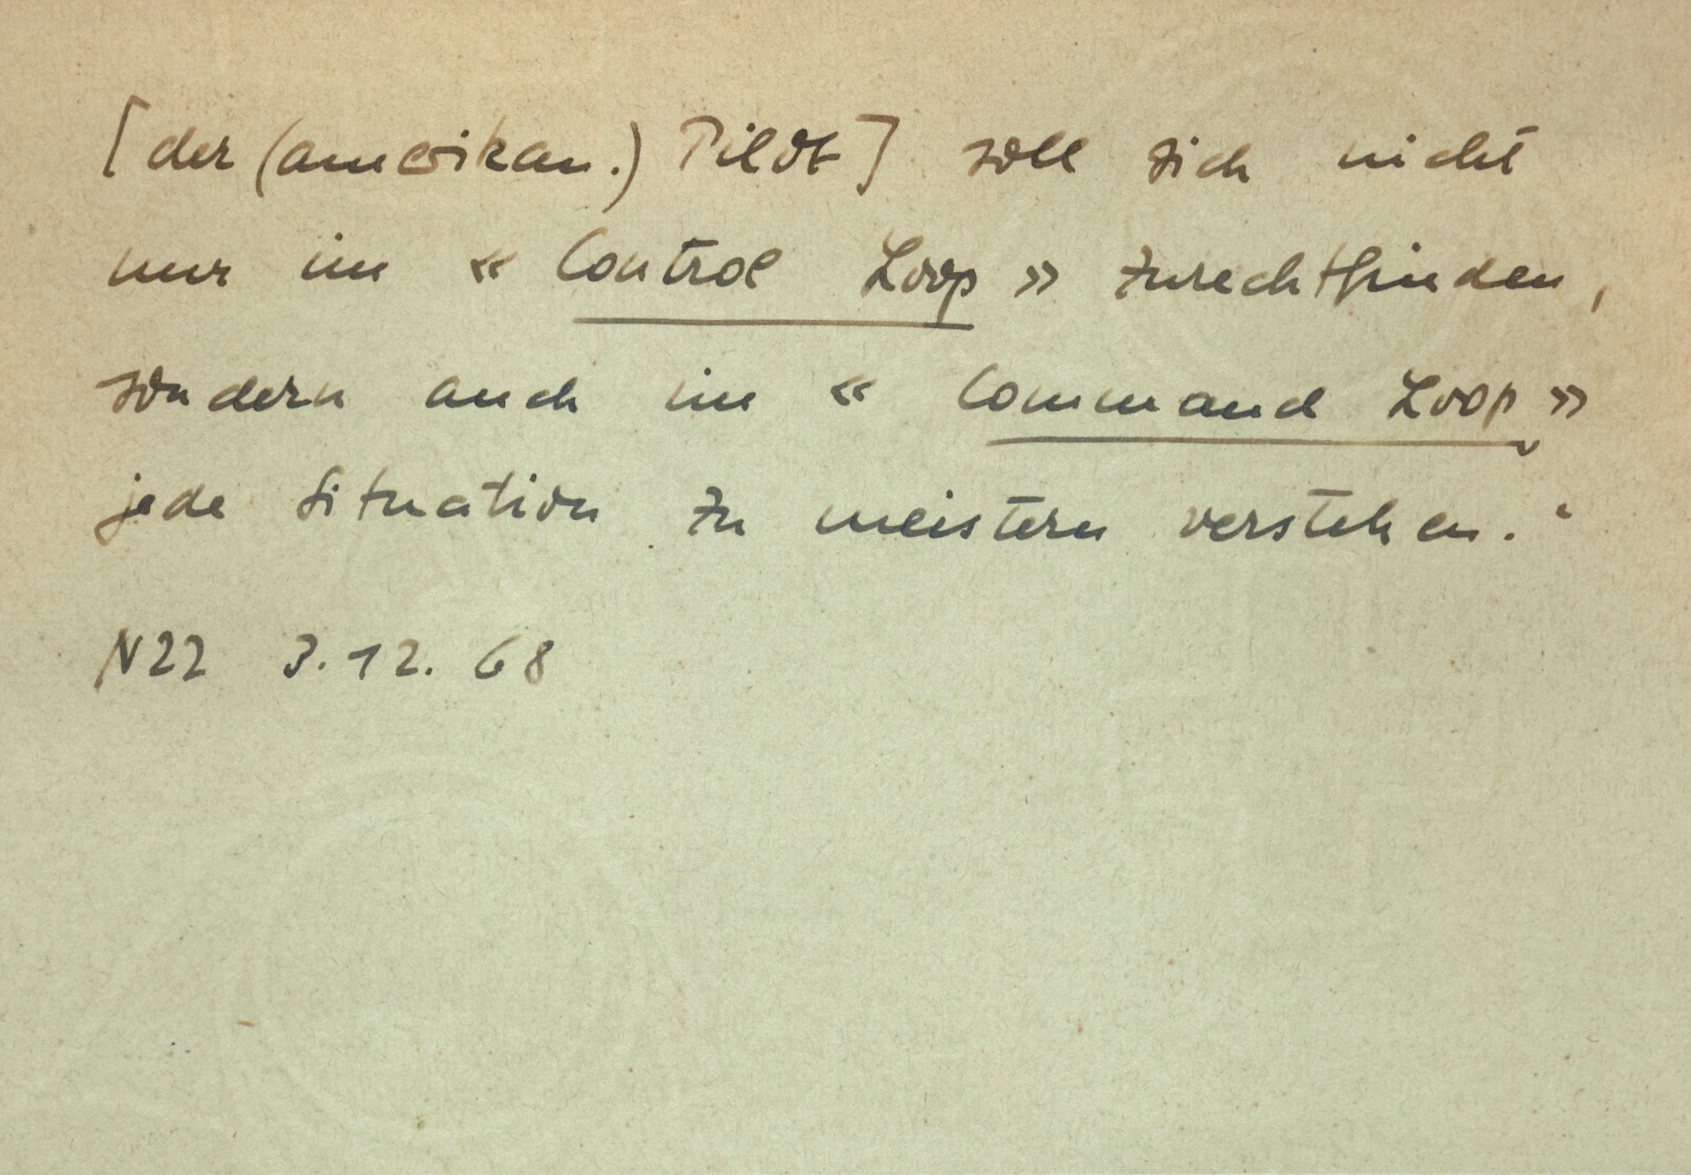 [der (amerikan.) Pilot] soll sich nicht
nur im « Control Loop » zurechtfinden,
sondern auch im « Command Loop »
jede Situation zu meistern verstehen."
NZZ 3.12.68